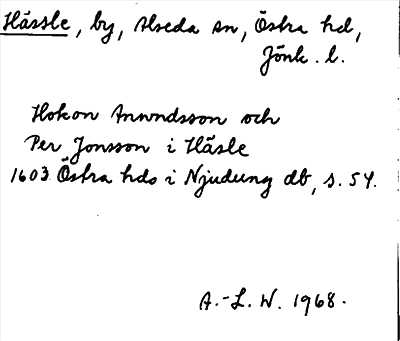 Hässle, by, Alseda sn, Östra hd,
Jönk. l.
Hokon Anundsson och
Per Jonsson i Häsle
1603 Östra hds i Njudung db, s. 54.
A.-L. W. 1968.